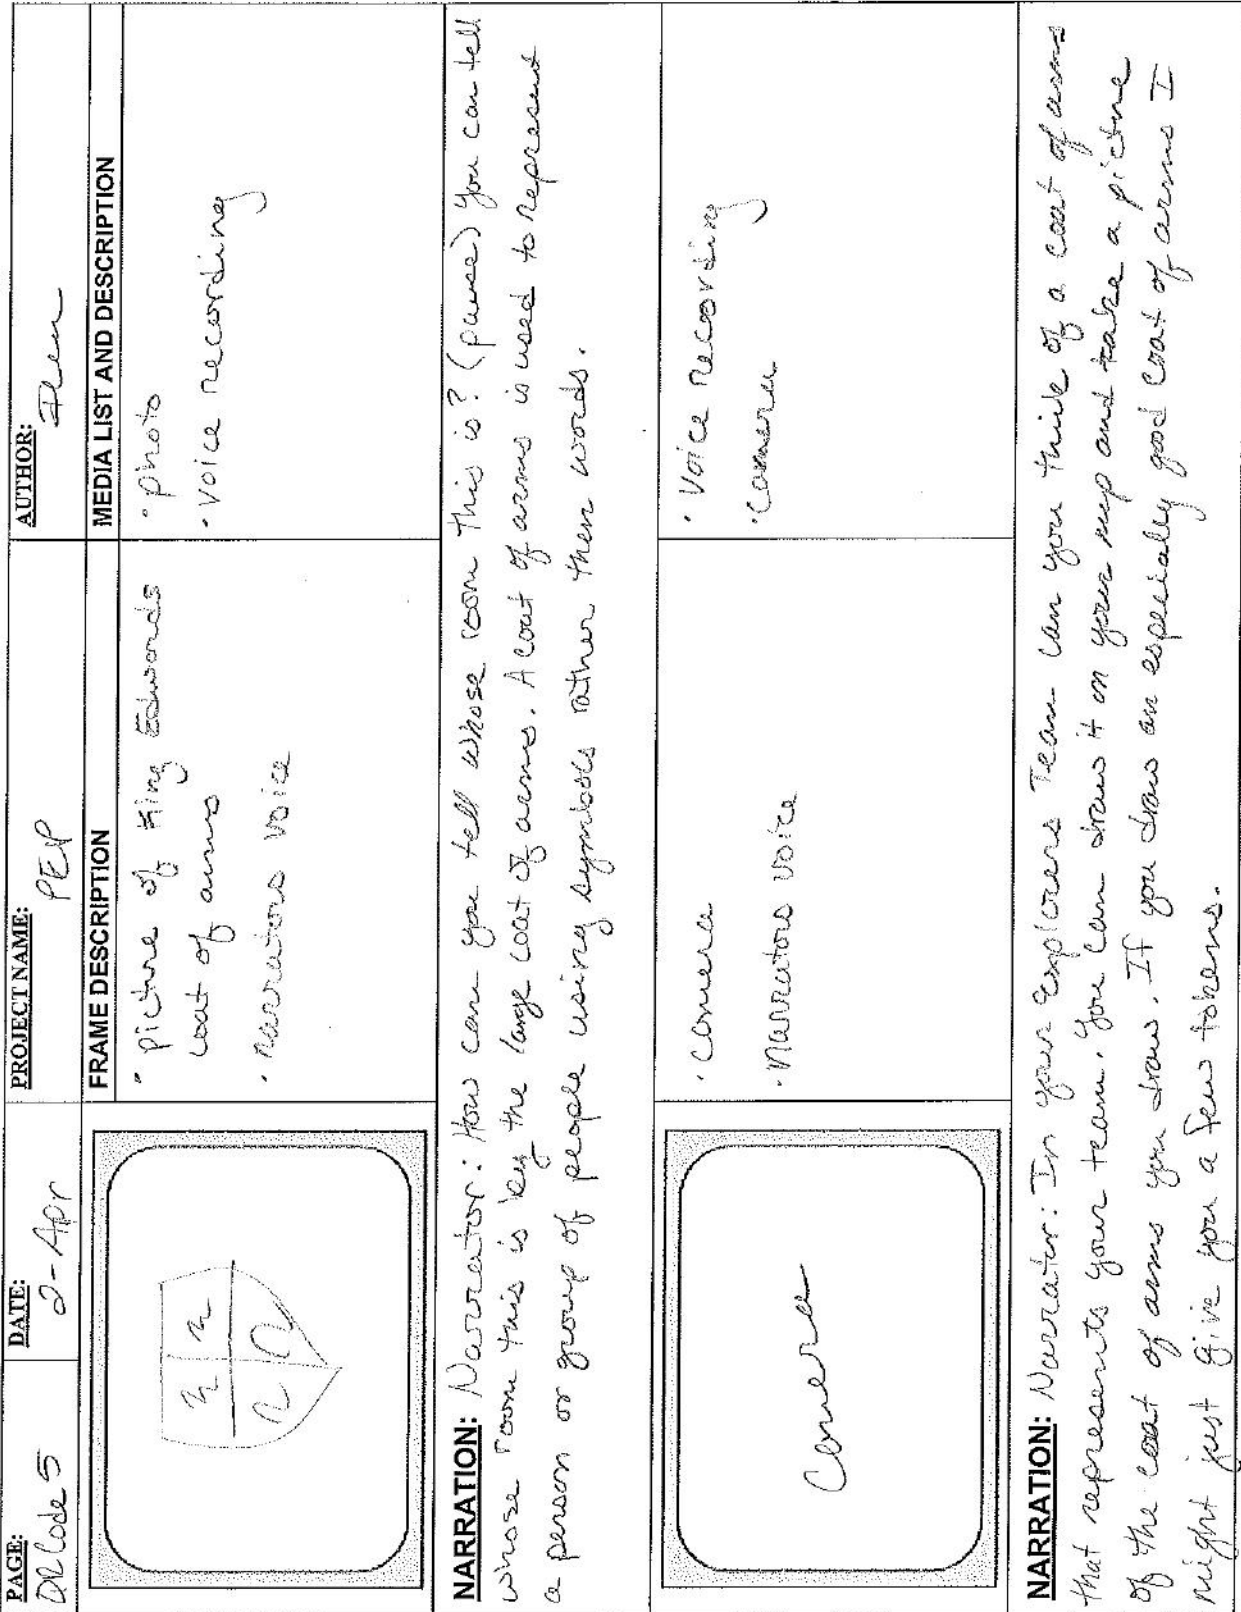 PAGE: DATE: PROJECT NAME: AUTHOR:
Code 5 2-Apr PEP
FRAME DESCRIPTION MEDIA LIST AND DESCRIPTION
• picture of King Edwards
coat of arms
• Narrators voice
• photo
• Voice recording
NARRATION: Narrator: How can you tell whose room this is? (pause) You can tell
whose room this is by the large coat of arms. A coat of arms is used to represent
a person or group of people using symbols rather then words.
Camera
• Camera
• Narrators voice
• Voice recording
• Camera
NARRATION: Narrator: In your Explorers Team can you think of a coat of arms
that represents your team. You can draw it on your map and take a picture
of the coat of arms you draw. If you draw an especially good coat of arms I
might just give you a few tokens.